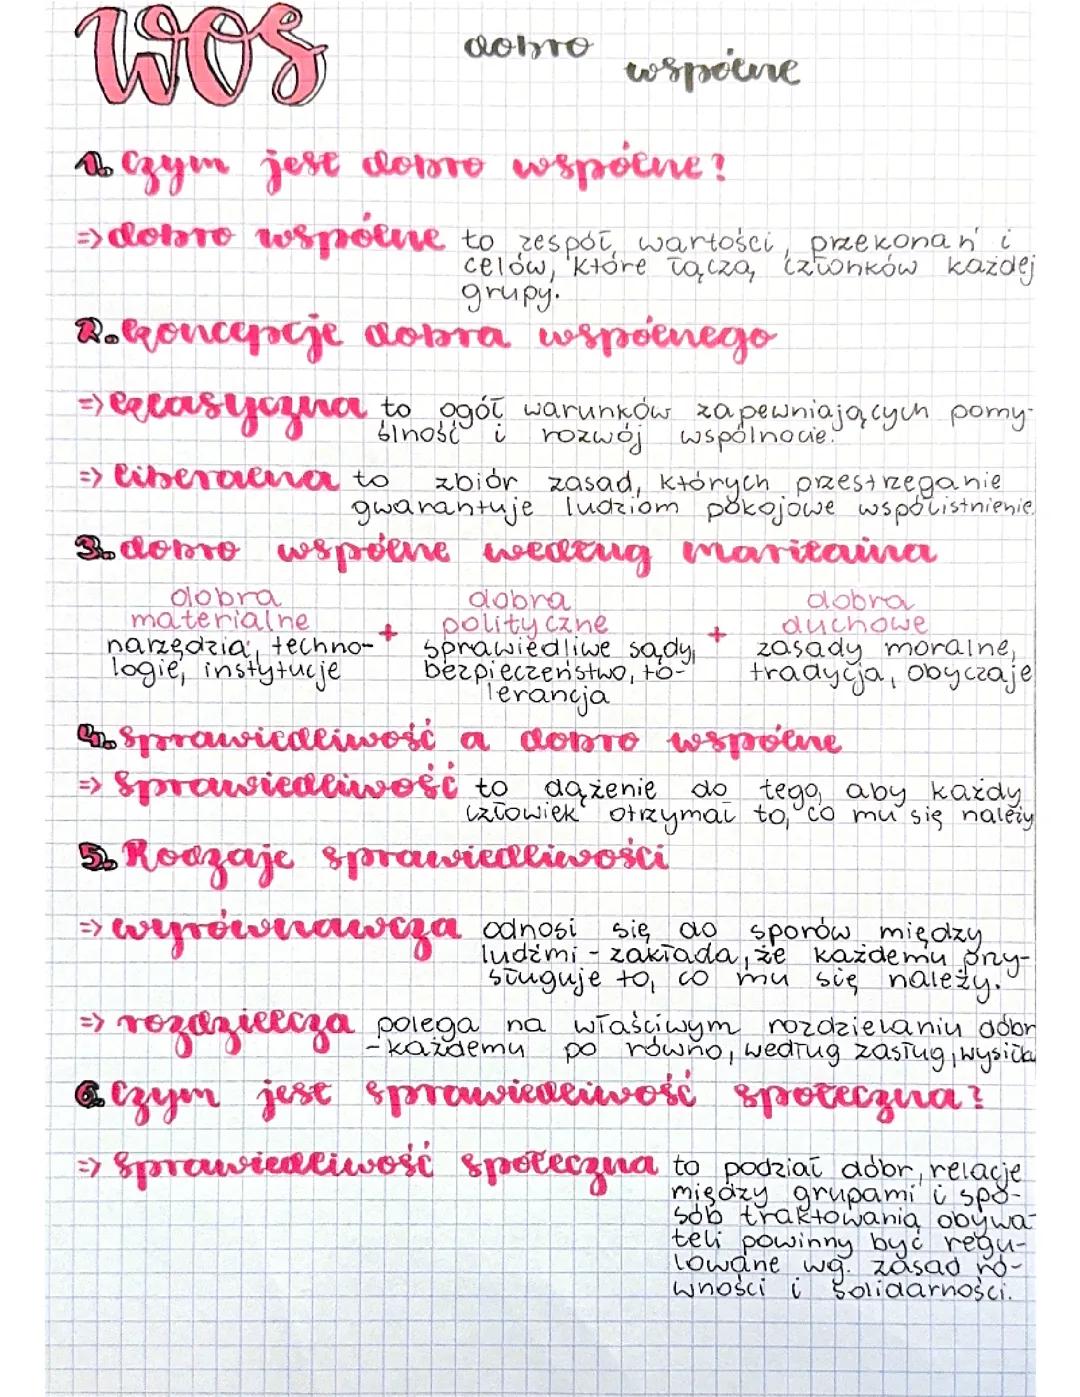 WOS
dobro
wspólne
1. Czym jest dobro wspólne?
=> dobro wspólne to zespół wartości, przekonań i
celów, które łączą członków każdej
grupy.
2. Koncepcje dobra wspólnego
=> klasyczna to ogół warunków zapewniających pomy-
ślność i rozwój wspólnocie.
=> liberalna to zbiór zasad, których przestrzeganie
gwarantuje ludziom pokojowe współistnienie.
3. dobro wspólne według maritaina
dobra materialne
narzędzia, techno-
logie, instytucje
+
dobra polityczne
sprawiedliwe sądy,
bezpieczeństwo, to-
lerancja
+
dobra duchowe
zasady moralne,
tradycja, obyczaje
4. Sprawiedliwość a dobro wspólne
=> Sprawiedliwość to dążenie do tego, aby każdy
człowiek otrzymał to, co mu się należy
5. Rodzaje sprawiedliwości
=> wyrównawcza odnosi się do sporów między
ludźmi - zakłada, że każdemu przy-
sługuje to, co mu się należy.
=> rozdzielcza polega na właściwym rozdzielaniu dóbr
- każdemu po równo, według zasług, wysiłku
6. Czym jest sprawiedliwość społeczna?
=> Sprawiedliwość społeczna to podział dóbr, relacje
między grupami i spo-
sób traktowania obywa-
teli powinny być regu-
lowane wg. zasad ró-
wności i solidarności.